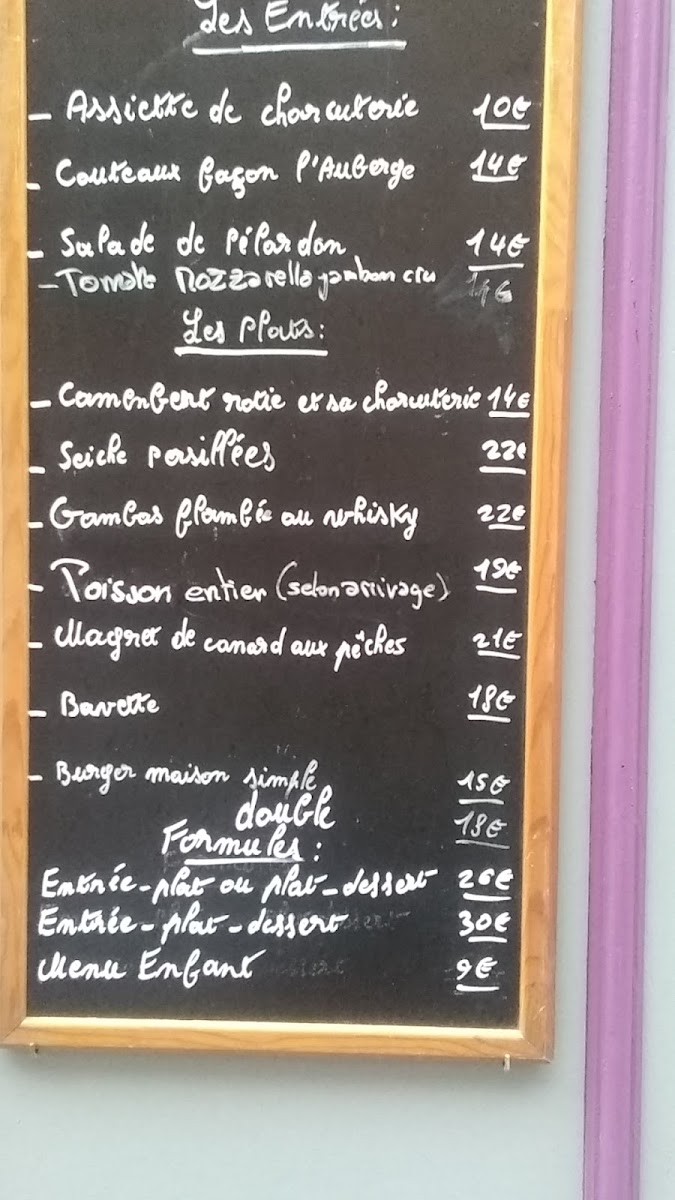 Les Entrées :
- Assiette de charcuterie 10€
- Couteaux façon l'Auberge 14€
- Salade de Pélardon 14€
- Tomate Mozzarella jambon cru 14€
Les Plats :
- Camenbert rotie et sa charcuterie 14€
- Seiche persillées 22€
- Gambas flambée au whisky 22€
- Poisson entier (selon arrivage) 19€
- Magret de canard aux pêches 21€
- Bavette 18€
- Burger maison simple 15€
double 18€
Formules :
Entrée-plat ou plat-dessert 26€
Entrée-plat-dessert 30€
Menu Enfant 9€